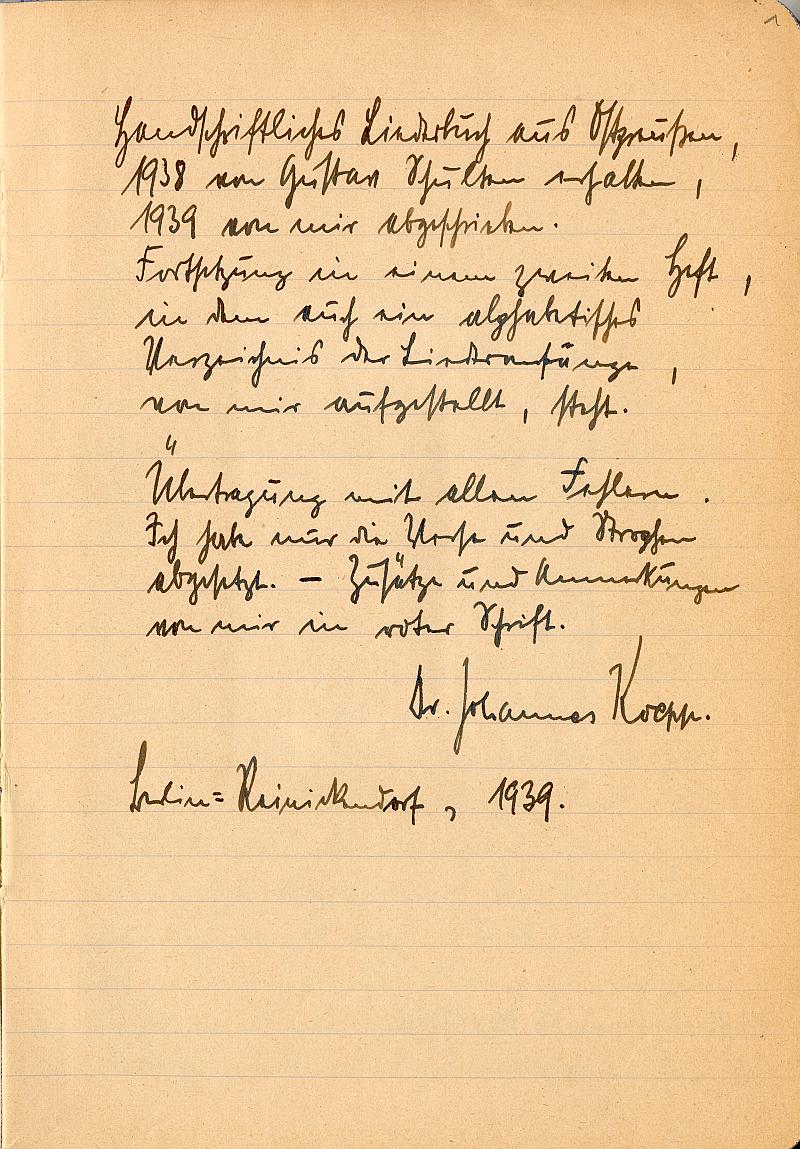 1
Handschriftliches Liederbuch aus Ostpreußen,
1938 von Gustav Schulten erhalten,
1939 von mir abgeschrieben.
Fortsetzung in einem zweiten Heft,
in dem auch ein alphabetisches
Verzeichnis der Liederanfänge,
von mir aufgestellt, steht.
Übertragung mit allen Fehlern.
Ich habe nur die Verse und Strophen
abgesetzt. – Zusätze und Anmerkungen
von mir in roter Schrift.
Dr. Johannes Koepp.
Berlin=Reinickendorf, 1939.